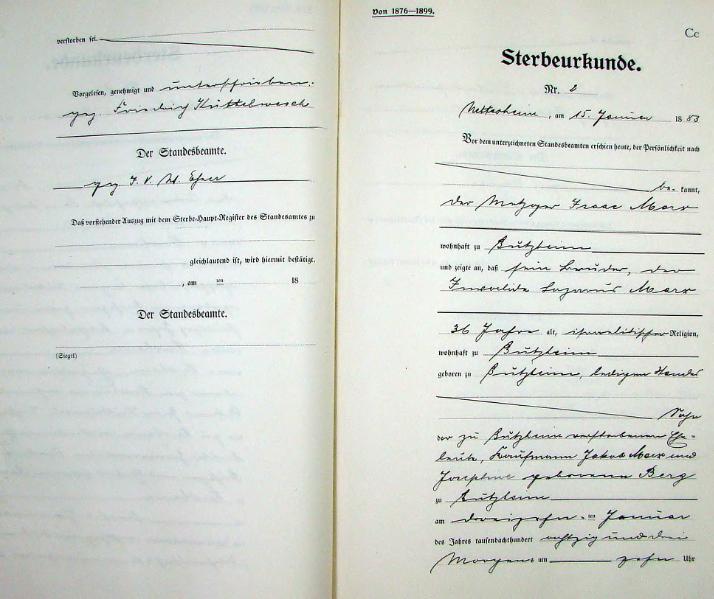 verstorben sei.
Vorgelesen, genehmigt und unterschrieben:
gez. Friedrich Küttelwesch
Der Standesbeamte.
gez. I. V. W. Esser
Daß vorstehender Auszug mit dem Sterbe-Haupt-Register des Standesamtes zu
gleichlautend ist, wird hiermit bestätigt.
, am ten 18
Der Standesbeamte.
(Siegel)
Von 1876—1899.
Cc
Sterbeurkunde.
Nr. 2
, am 15. Januar 1883
Vor dem unterzeichneten Standesbeamten erschien heute, der Persönlichkeit nach
be- kannt,
der Metzger Isaac Marx
wohnhaft zu Bützheim
und zeigte an, daß sein Bruder, der
Invalide Lazarus Marx
36 Jahre alt, israelitischer Religion,
wohnhaft zu Bützheim
geboren zu Bützheim, ledigen Standes
Sohn
der zu Bützheim verstorbenen Ehe-
leute, Kaufmann Jakob Marx und
Josephine geborene Berg
zu Bützheim
am dreizehn ten Januar
des Jahres tausendachthundert achtzig und drei
Morgens um zehn Uhr